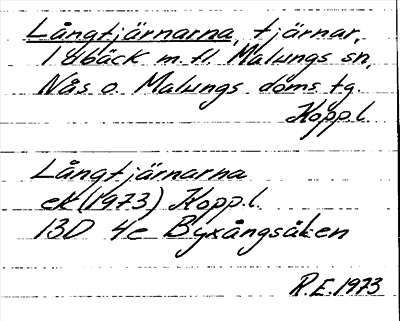 Långtjärnarna, tjärnar,
bäck m fl. Malungs sn,
Nås o. Malungs doms tg.
Kopp.l.
Långtjärnarna
ek (1973) Kopp.l.
13D 4e Byxångsåsen
R.E. 1973